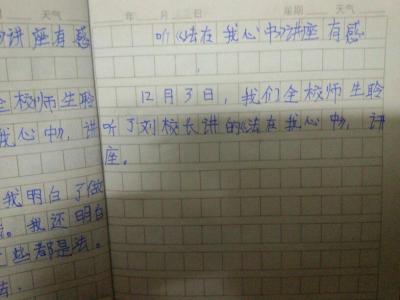 天气
座有感
全校师生聆
我心中》，讲
我明白了做
。我还明白
些都是法。
年 月 日 星期 天气
听《法在我心中》讲座有感
12月3日，我们全校师生聆
听了刘校长讲的《法在我心中》，讲
座。